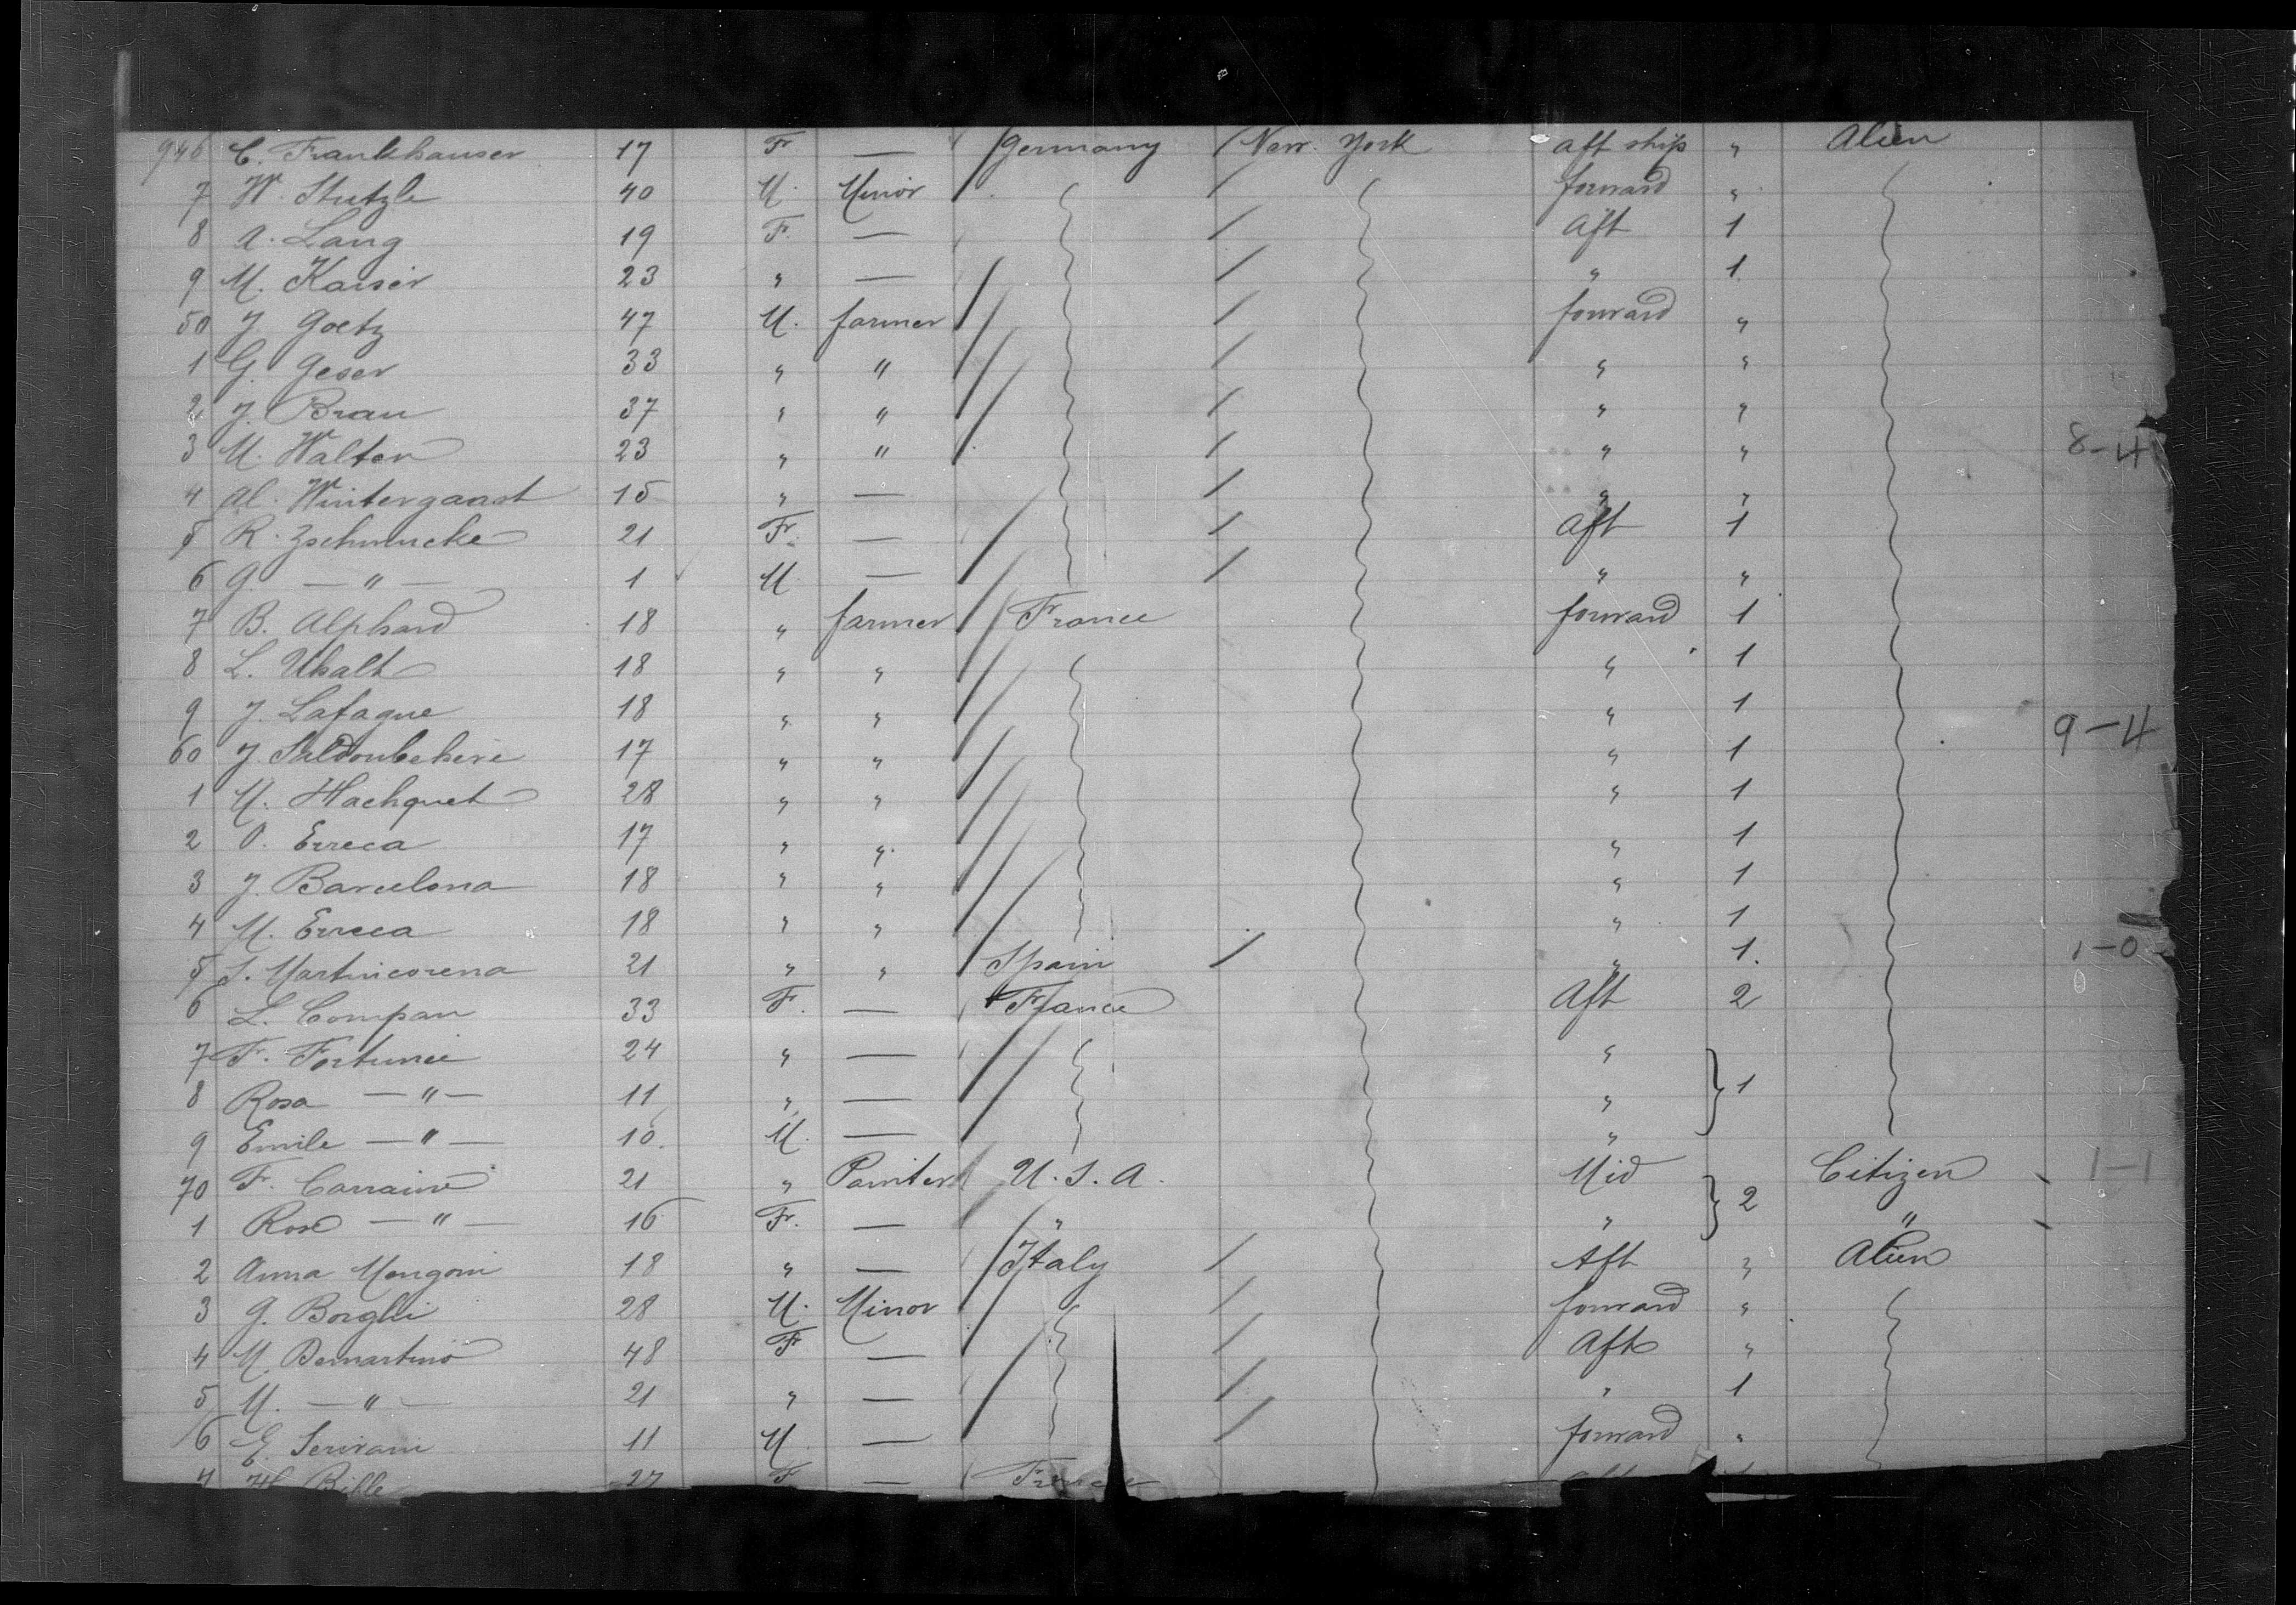 946 C. Frankhauser 17 Fr — Germany New York aft ship " Alien
7 W. Stutzle 40 M. Minor forward "
8 A. Lang 19 F. — Aft 1
9 M. Kaiser 23 " — " 1
50 J. Goetz 47 M. farmer forward "
1 G. Geser 33 " " " "
2 J. Brau 37 " " " "
3 M. Walter 23 " " " " 8-4
4 Al. Wintergaast 15 " — " "
5 R. Zschmucke 21 Fr. — Aft 1
6 G. — " — 1 M — " "
7 B. Alphard 18 " farmer France forward 1
8 L. Uhalt 18 " " " 1
9 J. Lafague 18 " " " 1 9-4
60 J. 17 " " " 1
1 M. Hachquet 28 " " " 1
2 O. Erreca 17 " " " 1
3 J. Barcelona 18 " " " 1
4 M. Erreca 18 " " " 1
5 S. Martincorena 21 " " Spain " 1. 1-0
6 L. Compan 33 F. — France Aft 2 0
7 Fr. Fortunée 24 " — "
8 Rosa — " — 11 " — " } 1
9 Emile — " — 10. M. — "
70 Fr. Carraine 21 " Painter U.S.A. Mid } 2 Citizen 1-1
1 Rose — " — 16 Fr. — " " "
2 Anna Mongoni 18 " — Italy Aft " Alien
3 G. Borghi 28 M. Minor forward "
4 M. Demartino 48 Fr — Aft "
5 M. — " — 21 " — " 1
6 E. Serivani 11 M. — forward "
7 H. Bille 27 F — France